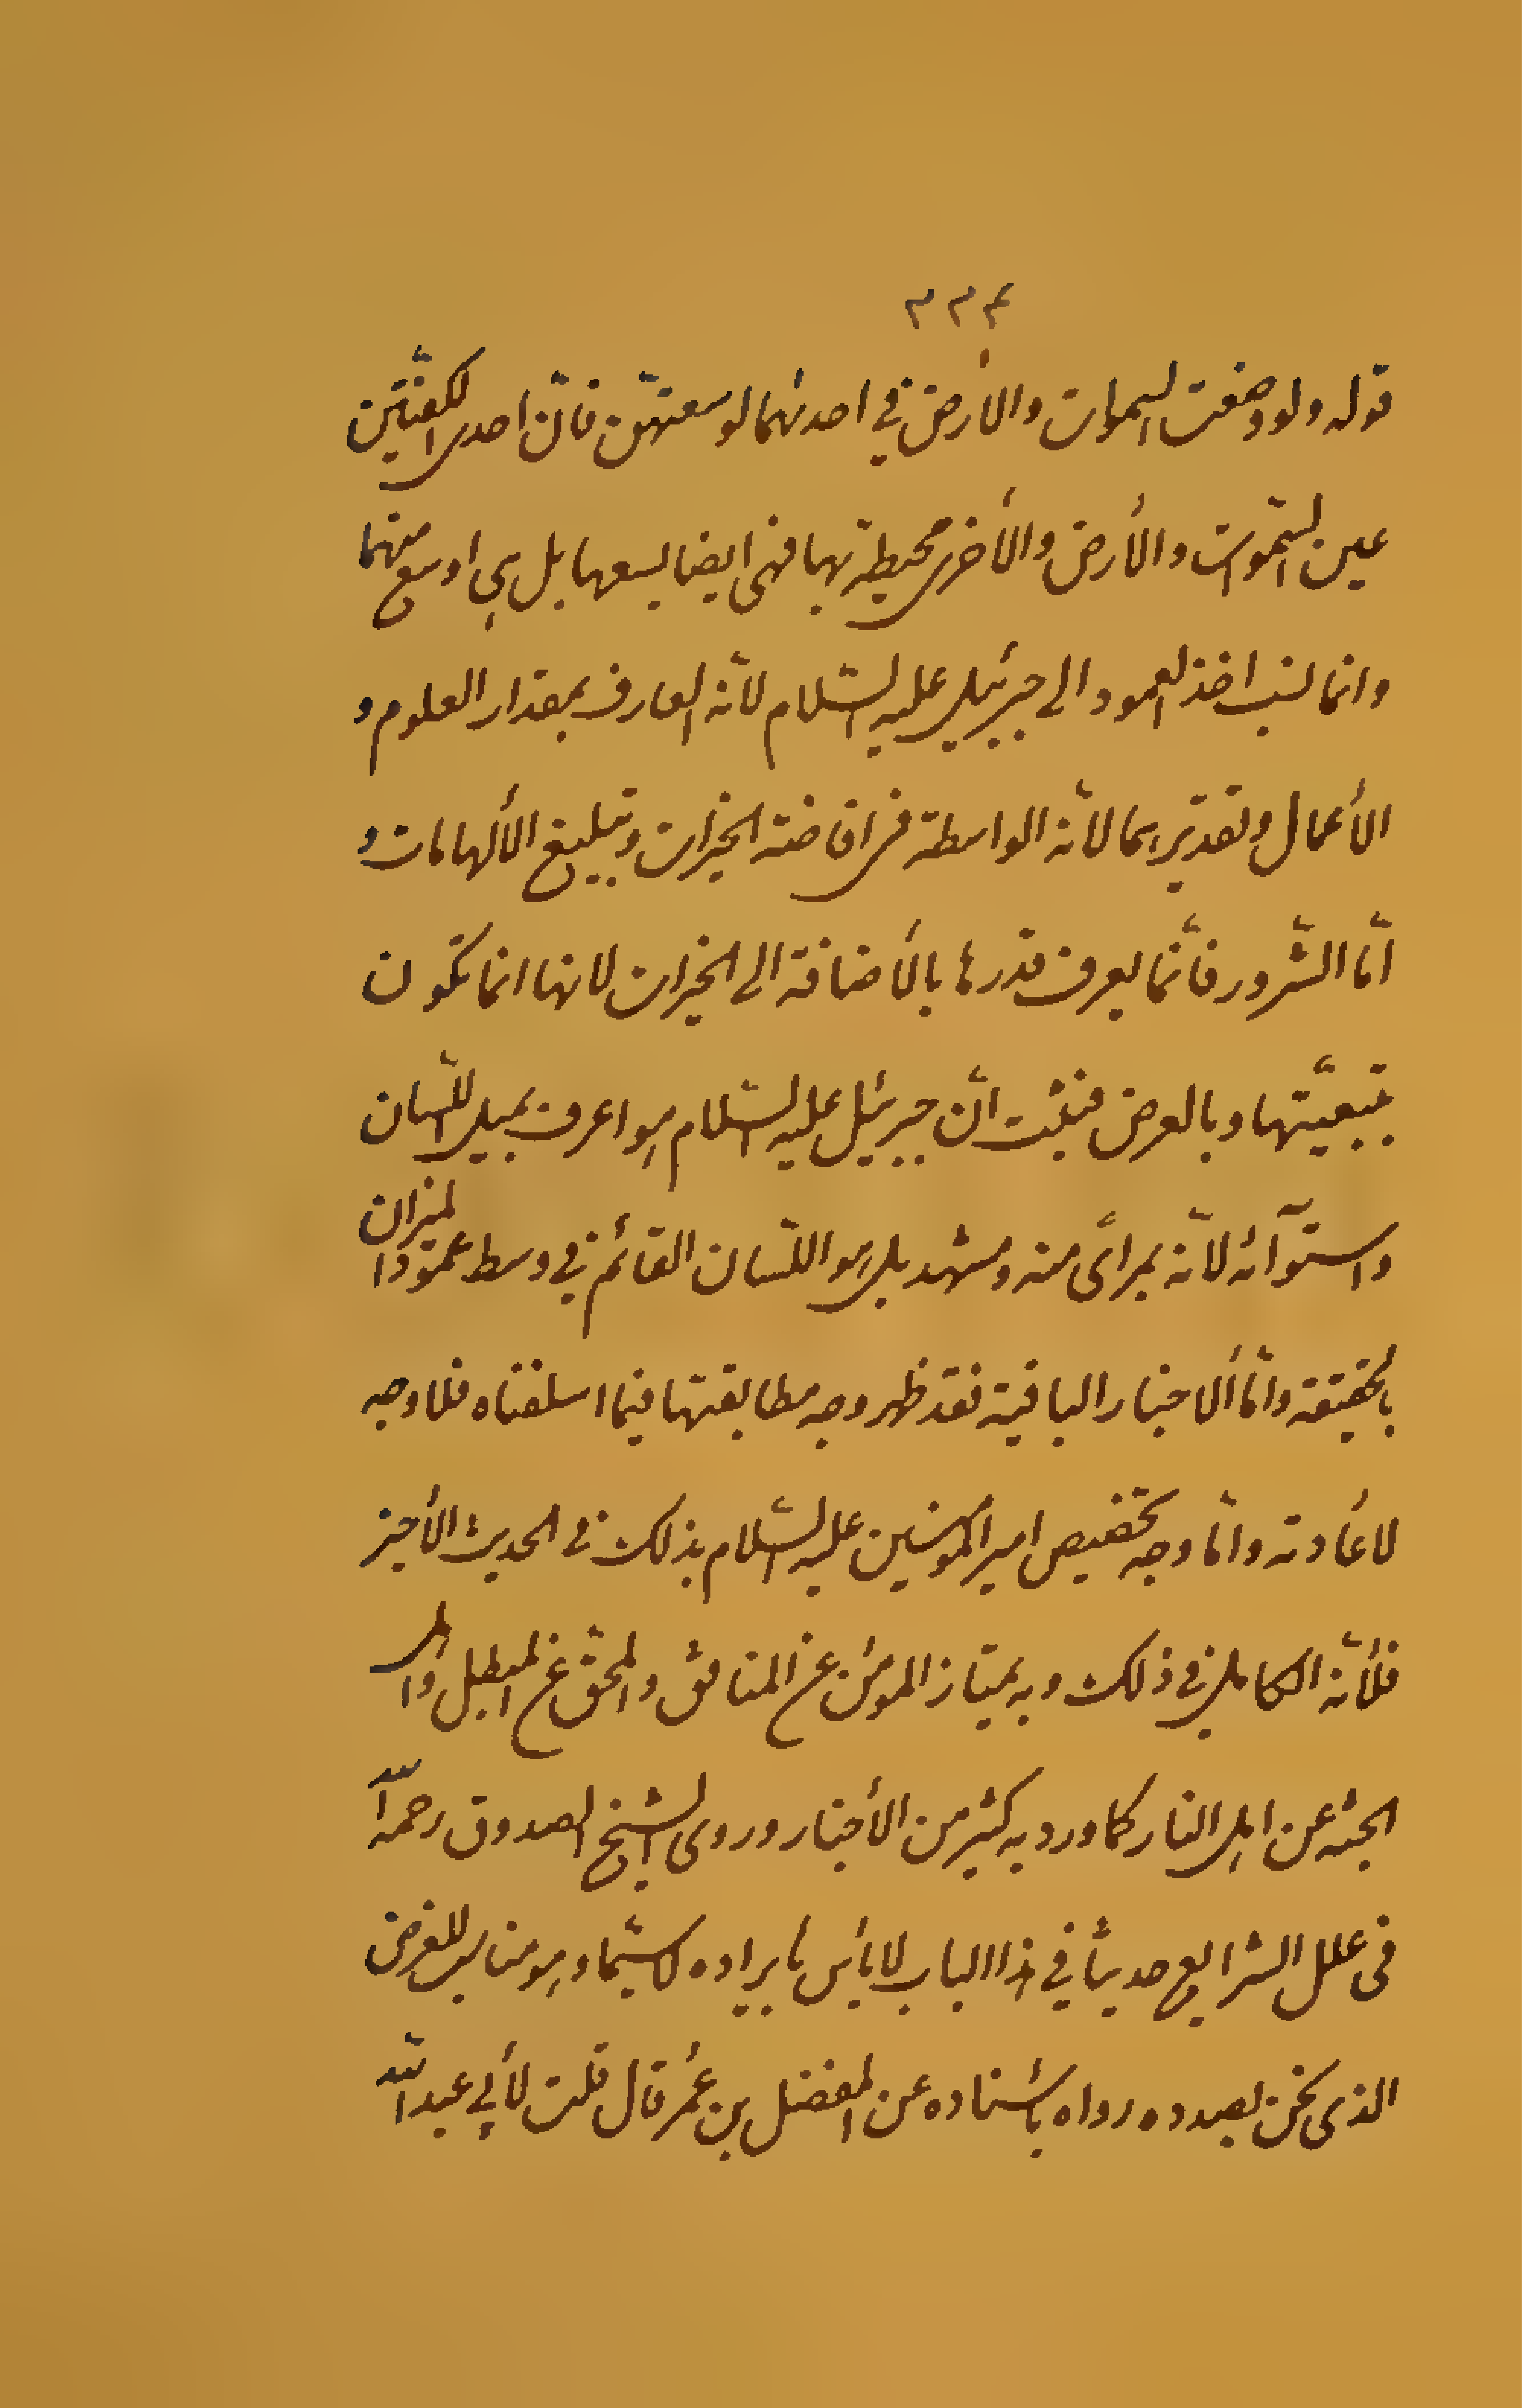 ٣٣٤
قوله ولو وضعت السموات والأرض في احدىٰهما لوسعتهنّ فانّ احدى الكفّتين
عين السّموات والأرض والأخرى محيطة بها فهى ايضا يسعها بل هي اوسع منهما
وانما نسب اخذ العمود الى جبرئيل عليه السّلام لأنّه العارف بمقدار العلوم و
الأعمال وتقديرهما لأنّه الواسطة فى افاضة الخيرات وتبليغ الألهامات و
امّا الشّرور فأنّما يعرف قدرها بالأضافة الى الخيرات لانها انما تكون
بتبعيّتها وبالعرض فثبت انّ جبرئيل عليه السّلام هو اعرف بميل اللّسان
واستوآئه لأنّه بمرأى منه ومشهد بل هو اللّسان القائم في وسط عمود الميزان
بالحقيقة وامّا الأخبار الباقية فقد ظهر وجه مطابقتها فيما اسلفناه فلا وجه
لأعادته وامّا وجه تخصيص امير المؤمنين عليه السّلام بذلك فى الحديث الأخير
فلأنّه الكامل في ذلك وبه يمتاز المؤمن عن المنافق والمحقّ عن المبطل واهل
الجنّة عن اهل النار كما ورد به كثير من الأخبار وروى الشيخ الصدوق رحمه الله
فى علل الشرايع حديثاً في هذا الباب لا بأس بأيراده لا سيّما وهو مناسب للغرض
الذى نحن بصدده رواه بأسناده عن المفضل بن عمر قال قلت لأبي عبد الله